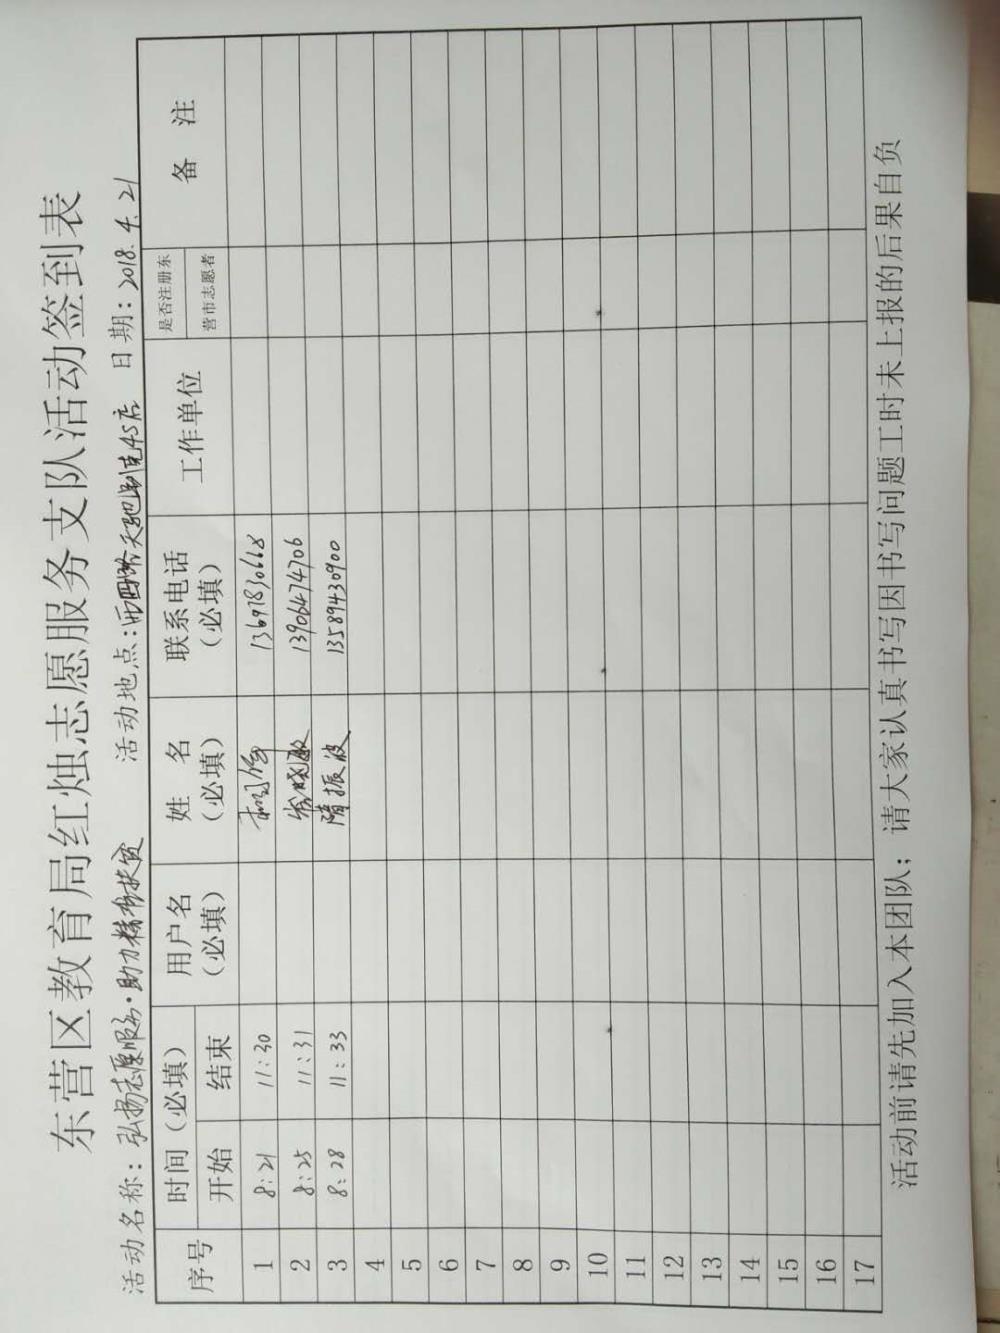 东营区教育局红烛志愿服务支队活动签到表
活动名称：弘扬志愿服务·助力精准扶贫 活动地点：西四路天驰别克4S店 日期：2018.4.21
序号 时间（必填） 用户名（必填） 姓 名（必填） 联系电话（必填） 工作单位 是否注册东营市志愿者 备 注
开始 结束
1 8:21 11:30 13697830668
2 8:25 11:31 晓敏 13906474706
3 8:28 11:33 隋振波 13589430900
4
5
6
7
8
9
10
11
12
13
14
15
16
17
活动前请先加入本团队；请大家认真书写因书写问题工时未上报的后果自负